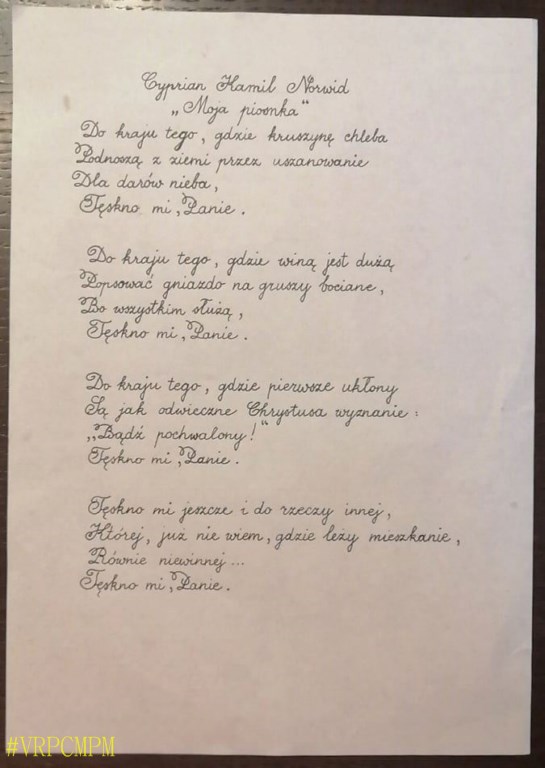 Cyprian Kamil Norwid
„Moja piosnka"
Do kraju tego, gdzie kruszynę chleba
Podnoszą z ziemi przez uszanowanie
Dla darów nieba,
Tęskno mi, Panie.
Do kraju tego, gdzie winą jest dużą
Popsować gniazdo na gruszy bociane,
Bo wszystkim służą,
Tęskno mi, Panie.
Do kraju tego, gdzie pierwsze ukłony
Są jak odwieczne Chrystusa wyznanie:
„Bądź pochwalony!"
Tęskno mi, Panie.
Tęskno mi jeszcze i do rzeczy innej,
Której, już nie wiem, gdzie leży mieszkanie,
Równie niewinnej...
Tęskno mi, Panie.
#VRPCMPM